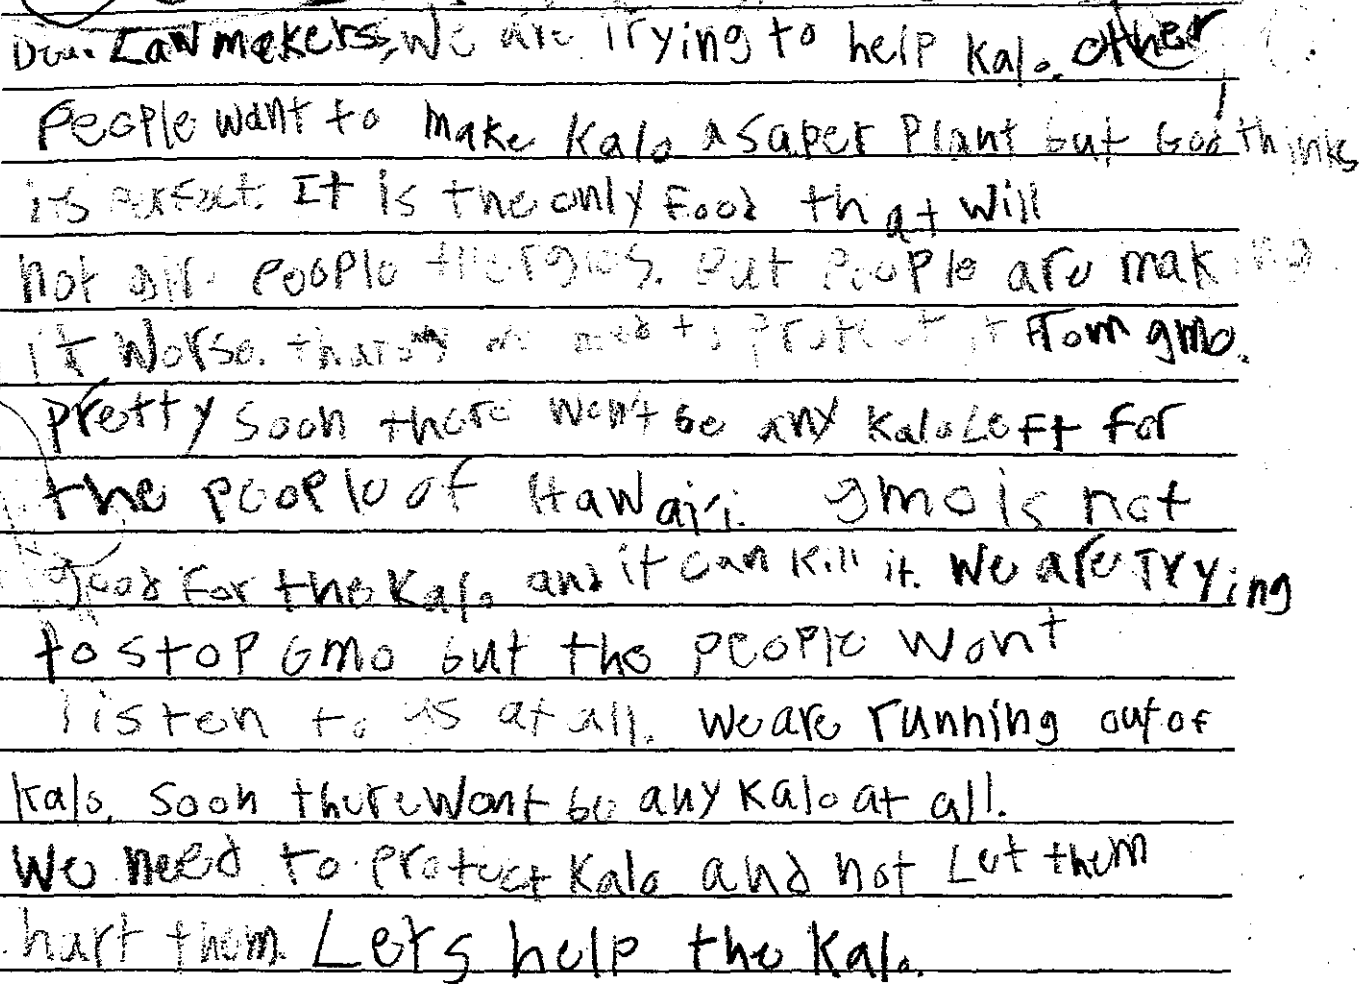 Dear Lawmekers, We are Trying to help kalo. other
People want to make Kalo a Saper Plant but God thinks
its perfect. It is the only Food that will
not give people allergies. But People are making
it worse. we need to protect it From gmo.
pretty soon there won't be any kalo Left for
the people of Hawai'i. gmo is not
good For the Kalo and it can kill it. We are Trying
to stop GMO but the people wont
listen to us at all. we are running out of
kalo. soon there wont be any kalo at all.
We need to protect kalo and not Let them
hart them. Lets help the kalo.